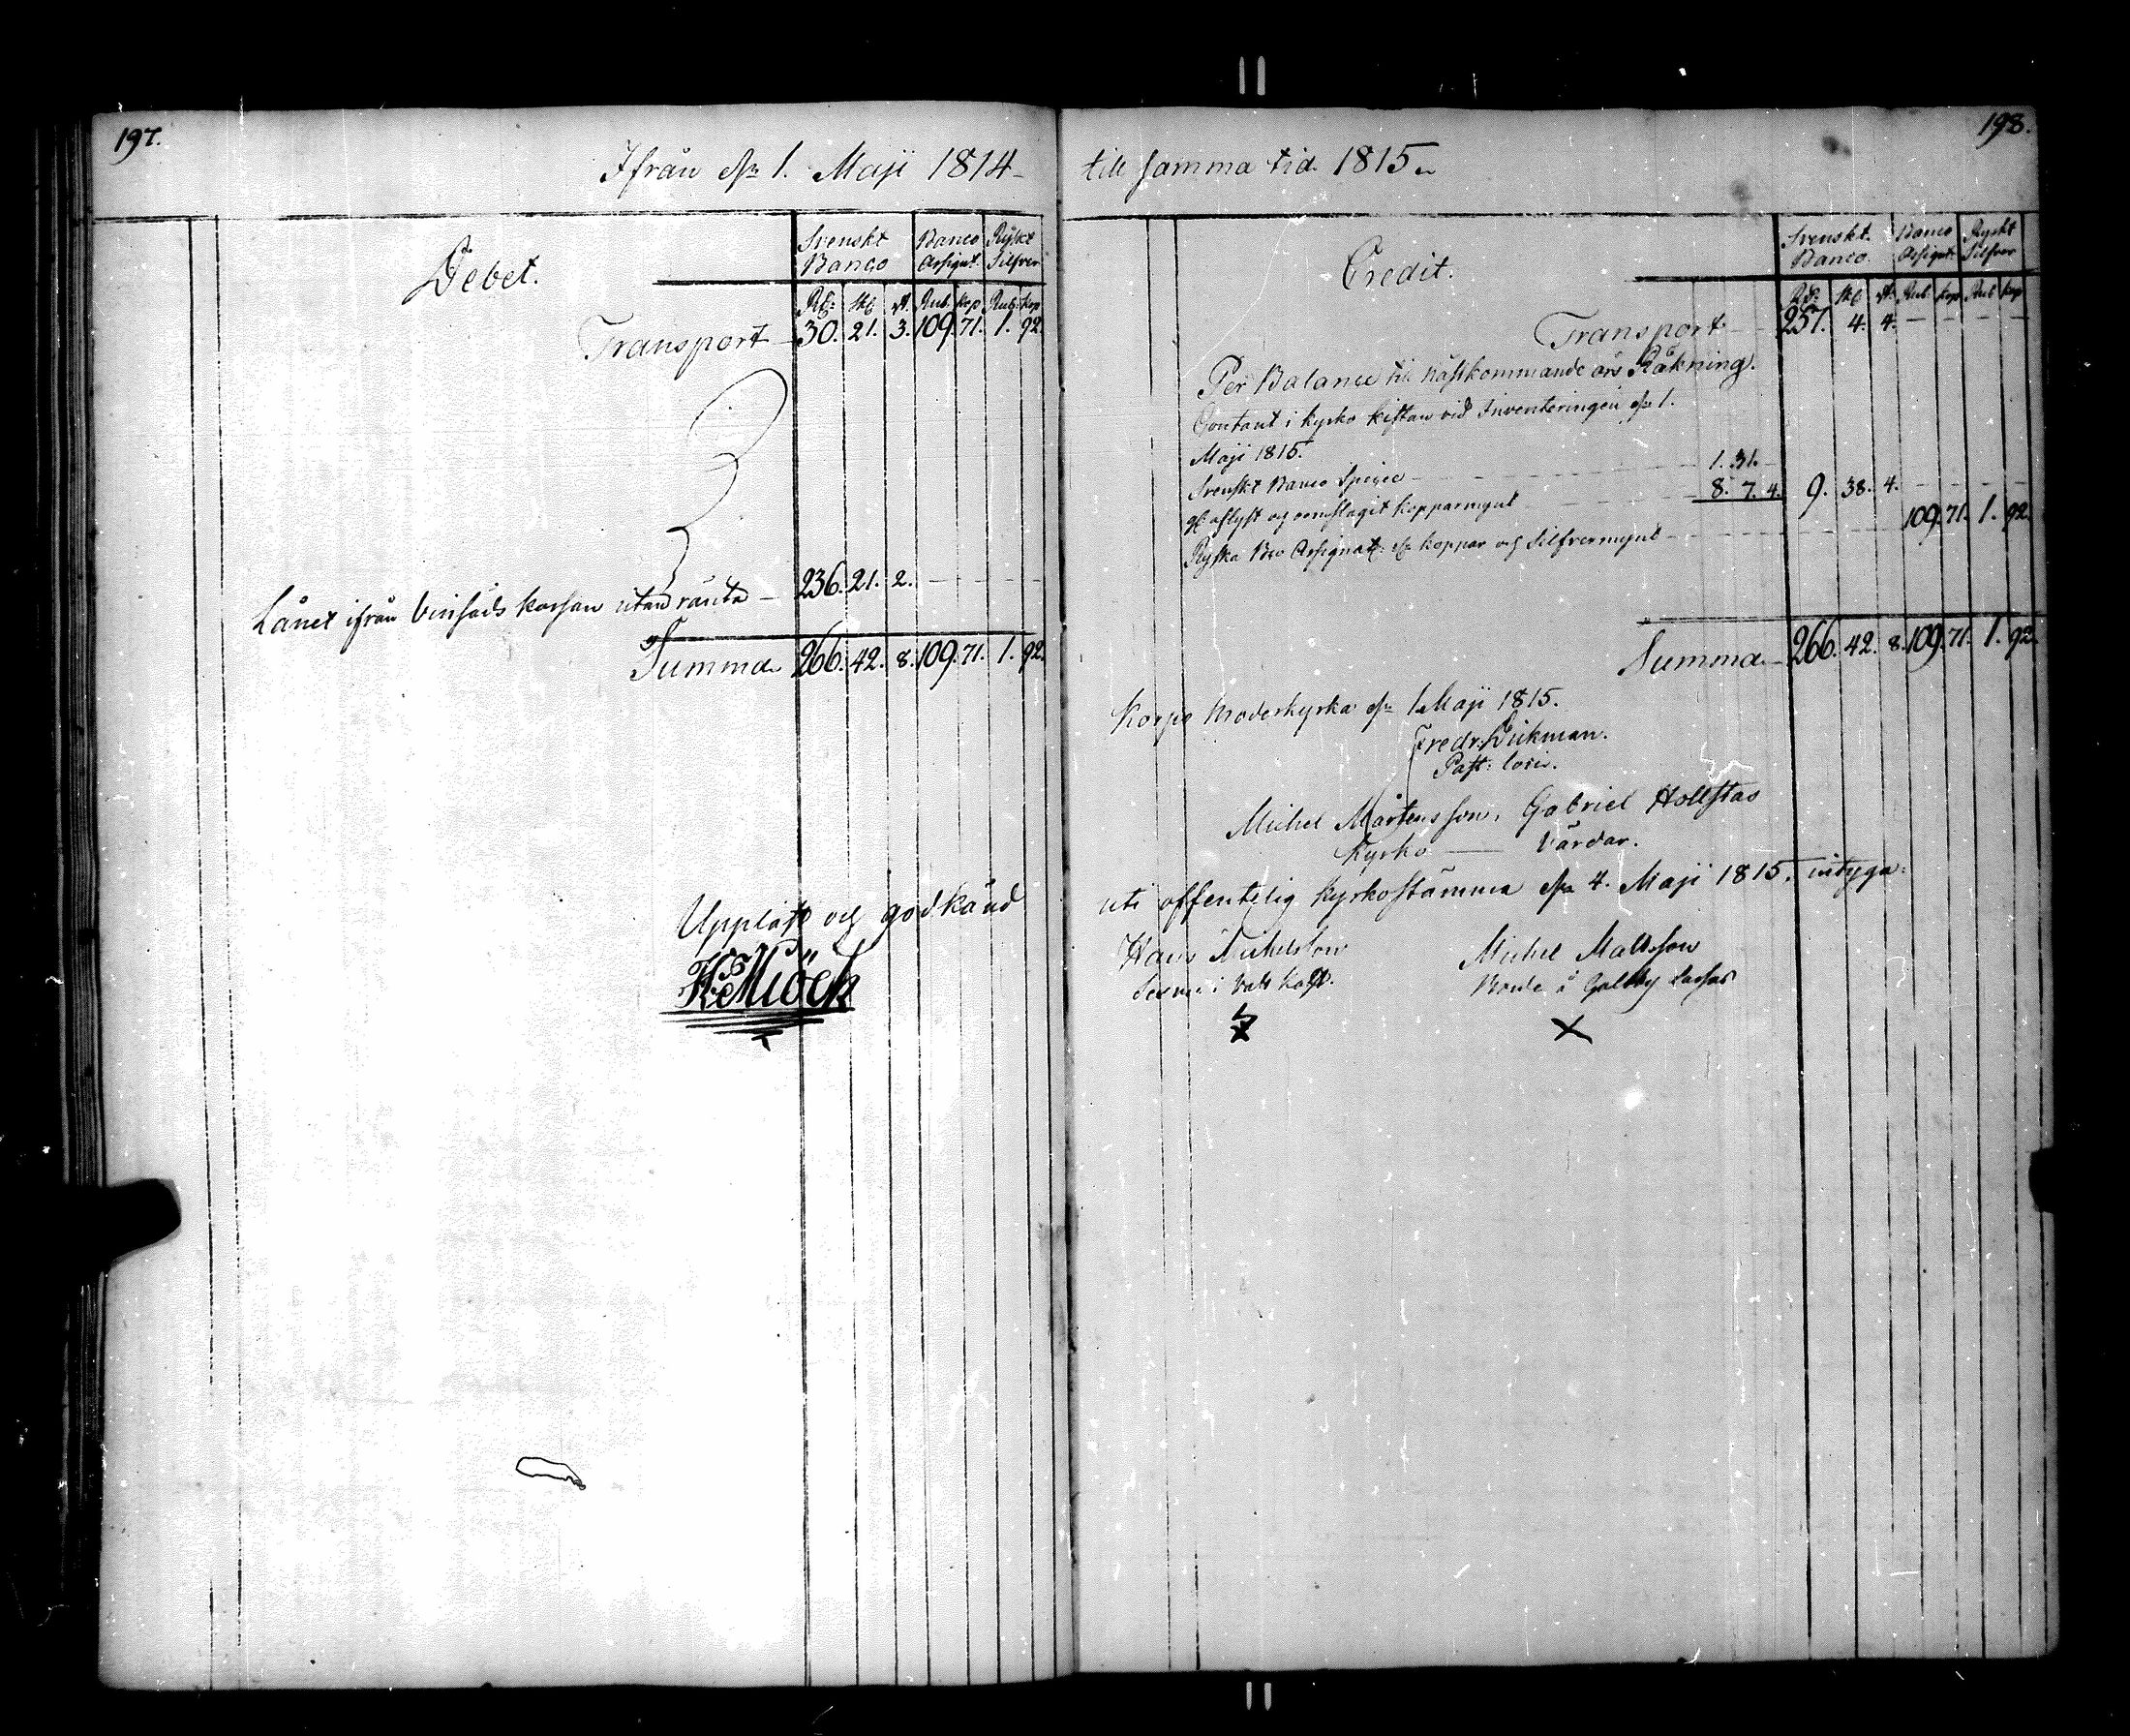 197.
Ifrån d. 1. Maji 1814
Debet.
Svenskt Banco Ryskt
Banco Assignt. Silfver
Rd: sk. r. Rub. kop Rub. kop
Transport 30. 21. 3. 109. 71. 1. 92.
Lånet ifrån utan ränta 236. 21. 2.
Summa 266. 42. 8. 109. 71. 1. 92.
Uppläst och godkänd
198.
till samma tid 1815
Credit.
Svenskt. Banco Ryskt
Banco. Assignt: Silfver
Rd: sk r. Rub. kop Rub kop
Transport 257. 4. 4.
Per Balance til nästkommande års Räkning.
Contant i kyrko kistan vid Inventeringen d. 1.
Maji 1815.
Svenskt Banco 1. 31.
och kopparmynt 8. 7. 4. 9. 38. 4.
Ryska Bco Assignat: koppar och Silfvermynt 109. 71. 1. 92.
Summa 266. 42. 8. 109. 71. 1. 92.
Korpo Moderkyrka d. 1 Maji 1815.
Fredr.
Past: loci.
Michel Mårtensson, Gabriel
Kyrko Värdar.
uti offentelig kyrkostämma d. 4. Maji 1815. intyga:
Hans Michelsson Michel Mattsson
i Bonde å Galtby